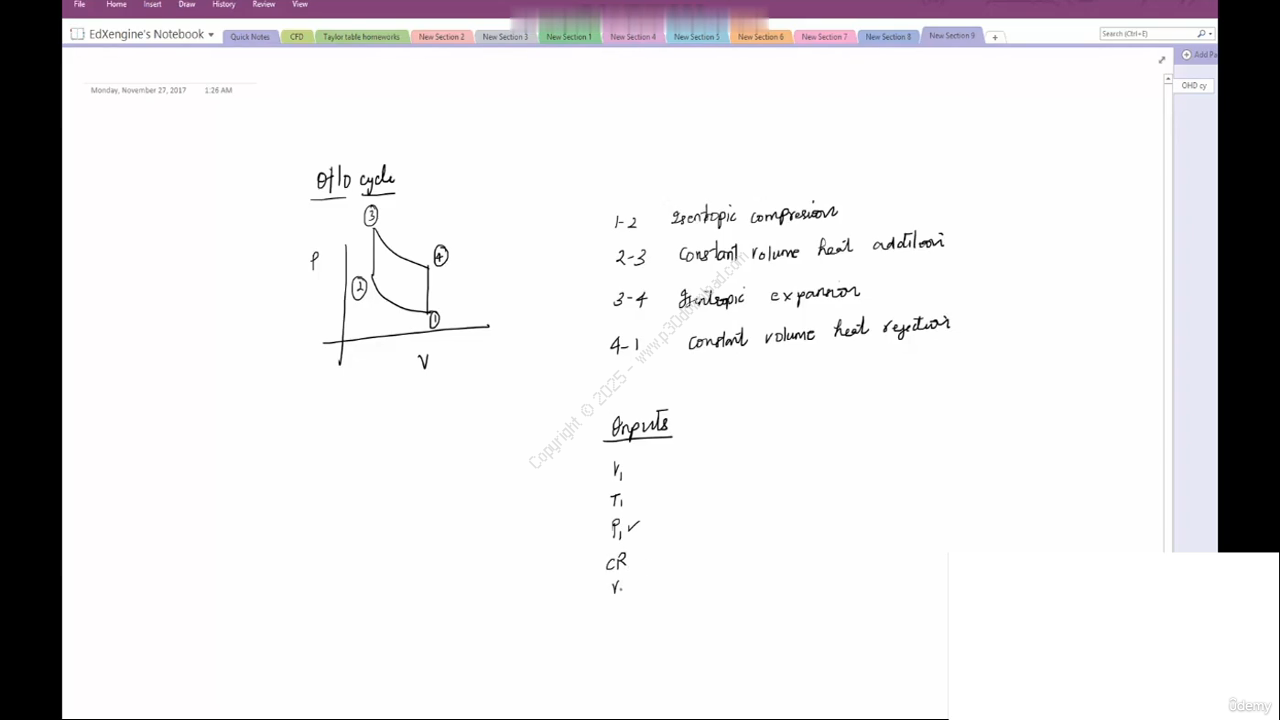 File Home Insert Draw History Review View
EdXengine's Notebook
Quick Notes CFD Taylor table homeworks New Section 2 New Section 3 New Section 1 New Section 4 New Section 5 New Section 6 New Section 7 New Section 8 New Section 9 +
Search (Ctrl+E)
Add Pa
OHD cy
Monday, November 27, 2017 1:26 AM
Otto cycle
3
P
4
2
1
V
1-2 Isentopic compresion
2-3 Constant volume heat addition
3-4 Isentropic expansion
4-1 Constant volume heat rejection
Copyright © 2025 - www.p30download.com
Inputs
V1
T1
P1 ✓
CR
V.
ûdemy